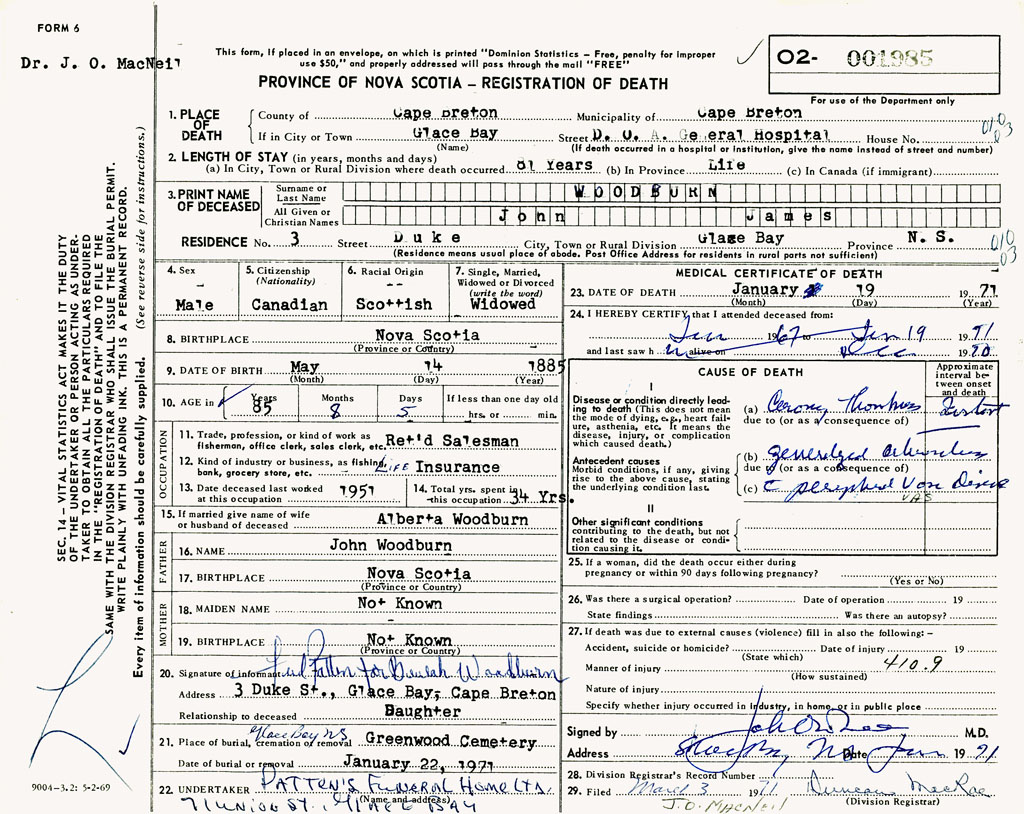 FORM 6
Dr. J. O. MacNeil
This form, If placed in an envelope, on which is printed "Dominion Statistics – Free, penalty for improper
use $50," and properly addressed will pass through the mail "FREE"
PROVINCE OF NOVA SCOTIA – REGISTRATION OF DEATH
02- 001985
For use of the Department only
SEC. 14 – VITAL STATISTICS ACT MAKES IT THE DUTY
OF THE UNDERTAKER OR PERSON ACTING AS UNDER-
TAKER TO OBTAIN ALL THE PARTICULARS REQUIRED
IN THE "REGISTRATION OF DEATH" AND TO FILE THE
SAME WITH THE DIVISION REGISTRAR WHO SHALL ISSUE THE BURIAL PERMIT.
WRITE PLAINLY WITH UNFADING INK. THIS IS A PERMANENT RECORD.
Every item of information should be carefully supplied. (See reverse side for instructions.)
1. PLACE OF DEATH County of Cape Breton Municipality of Cape Breton
If in City or Town Glace Bay Street D. U. A. General Hospital House No.
(Name) (If death occurred in a hospital or Institution, give the name instead of street and number)
010
03
2. LENGTH OF STAY (in years, months and days)
(a) In City, Town or Rural Division where death occurred 81 Years (b) In Province Life (c) In Canada (if immigrant)
3. PRINT NAME OF DECEASED Surname or Last Name WOODBURN
All Given or Christian Names John James
RESIDENCE No. 3 Street Duke City, Town or Rural Division Glace Bay Province N. S.
(Residence means usual place of abode. Post Office Address for residents in rural parts not sufficient)
010
03
4. Sex Male
5. Citizenship (Nationality) Canadian
6. Racial Origin -- Scottish
7. Single, Married, Widowed or Divorced (write the word) Widowed
8. BIRTHPLACE Nova Scotia
(Province or Country)
9. DATE OF BIRTH May 14 1885
(Month) (Day) (Year)
10. AGE in Years 85 Months 8 Days 5 If less than one day old
hrs. or min.
OCCUPATION
11. Trade, profession, or kind of work as fisherman, office clerk, sales clerk, etc. Ret'd Salesman
12. Kind of industry or business, as fishing, bank, grocery store, etc. Life Insurance
13. Date deceased last worked at this occupation 1951
14. Total yrs. spent in this occupation 34 Yrs.
15. If married give name of wife or husband of deceased Alberta Woodburn
FATHER
16. NAME John Woodburn
17. BIRTHPLACE Nova Scotia
(Province or Country)
MOTHER
18. MAIDEN NAME Not Known
19. BIRTHPLACE Not Known
(Province or Country)
20. Signature of informant Fred Patten for Beulah Woodburn
Address 3 Duke St., Glace Bay, Cape Breton
Relationship to deceased Daughter
21. Place of burial, cremation or removal Glace Bay NS Greenwood Cemetery
Date of burial or removal January 22, 1971
22. UNDERTAKER PATTEN'S FUNERAL HOME LTD.
(Name and address)
71 UNION ST. GLACE BAY
9004–3.2: 5-2-69
MEDICAL CERTIFICATE OF DEATH
23. DATE OF DEATH January 19 1971
(Month) (Day) (Year)
24. I HEREBY CERTIFY that I attended deceased from:
Jan 1967 to Jan 19 1971
and last saw h alive on Dec 1970
CAUSE OF DEATH
Approximate interval between onset and death
I
Disease or condition directly leading to death (This does not mean the mode of dying, e.g., heart failure, asthenia, etc. It means the disease, injury, or complication which caused death.)
(a) Thombosis
due to (or as a consequence of)
Antecedent causes
Morbid conditions, if any, giving rise to the above cause, stating the underlying condition last.
(b) generalized
due to (or as a consequence of)
(c) c peripheral Disease
VAS
II
Other significant conditions contributing to the death, but not related to the disease or condition causing it.
25. If a woman, did the death occur either during pregnancy or within 90 days following pregnancy?
(Yes or No)
26. Was there a surgical operation? Date of operation 19
State findings Was there an autopsy?
27. If death was due to external causes (violence) fill in also the following: –
Accident, suicide or homicide? Date of injury 19
(State which)
Manner of injury 410.9
(How sustained)
Nature of injury
Specify whether injury occurred in Industry, in home, or in public place
Signed by M.D.
Address Glace Bay NS Date Jan 1971
28. Division Registrar's Record Number
29. Filed March 3 1971 Duncan MacRae
(Division Registrar)
J.O. MACNEIL